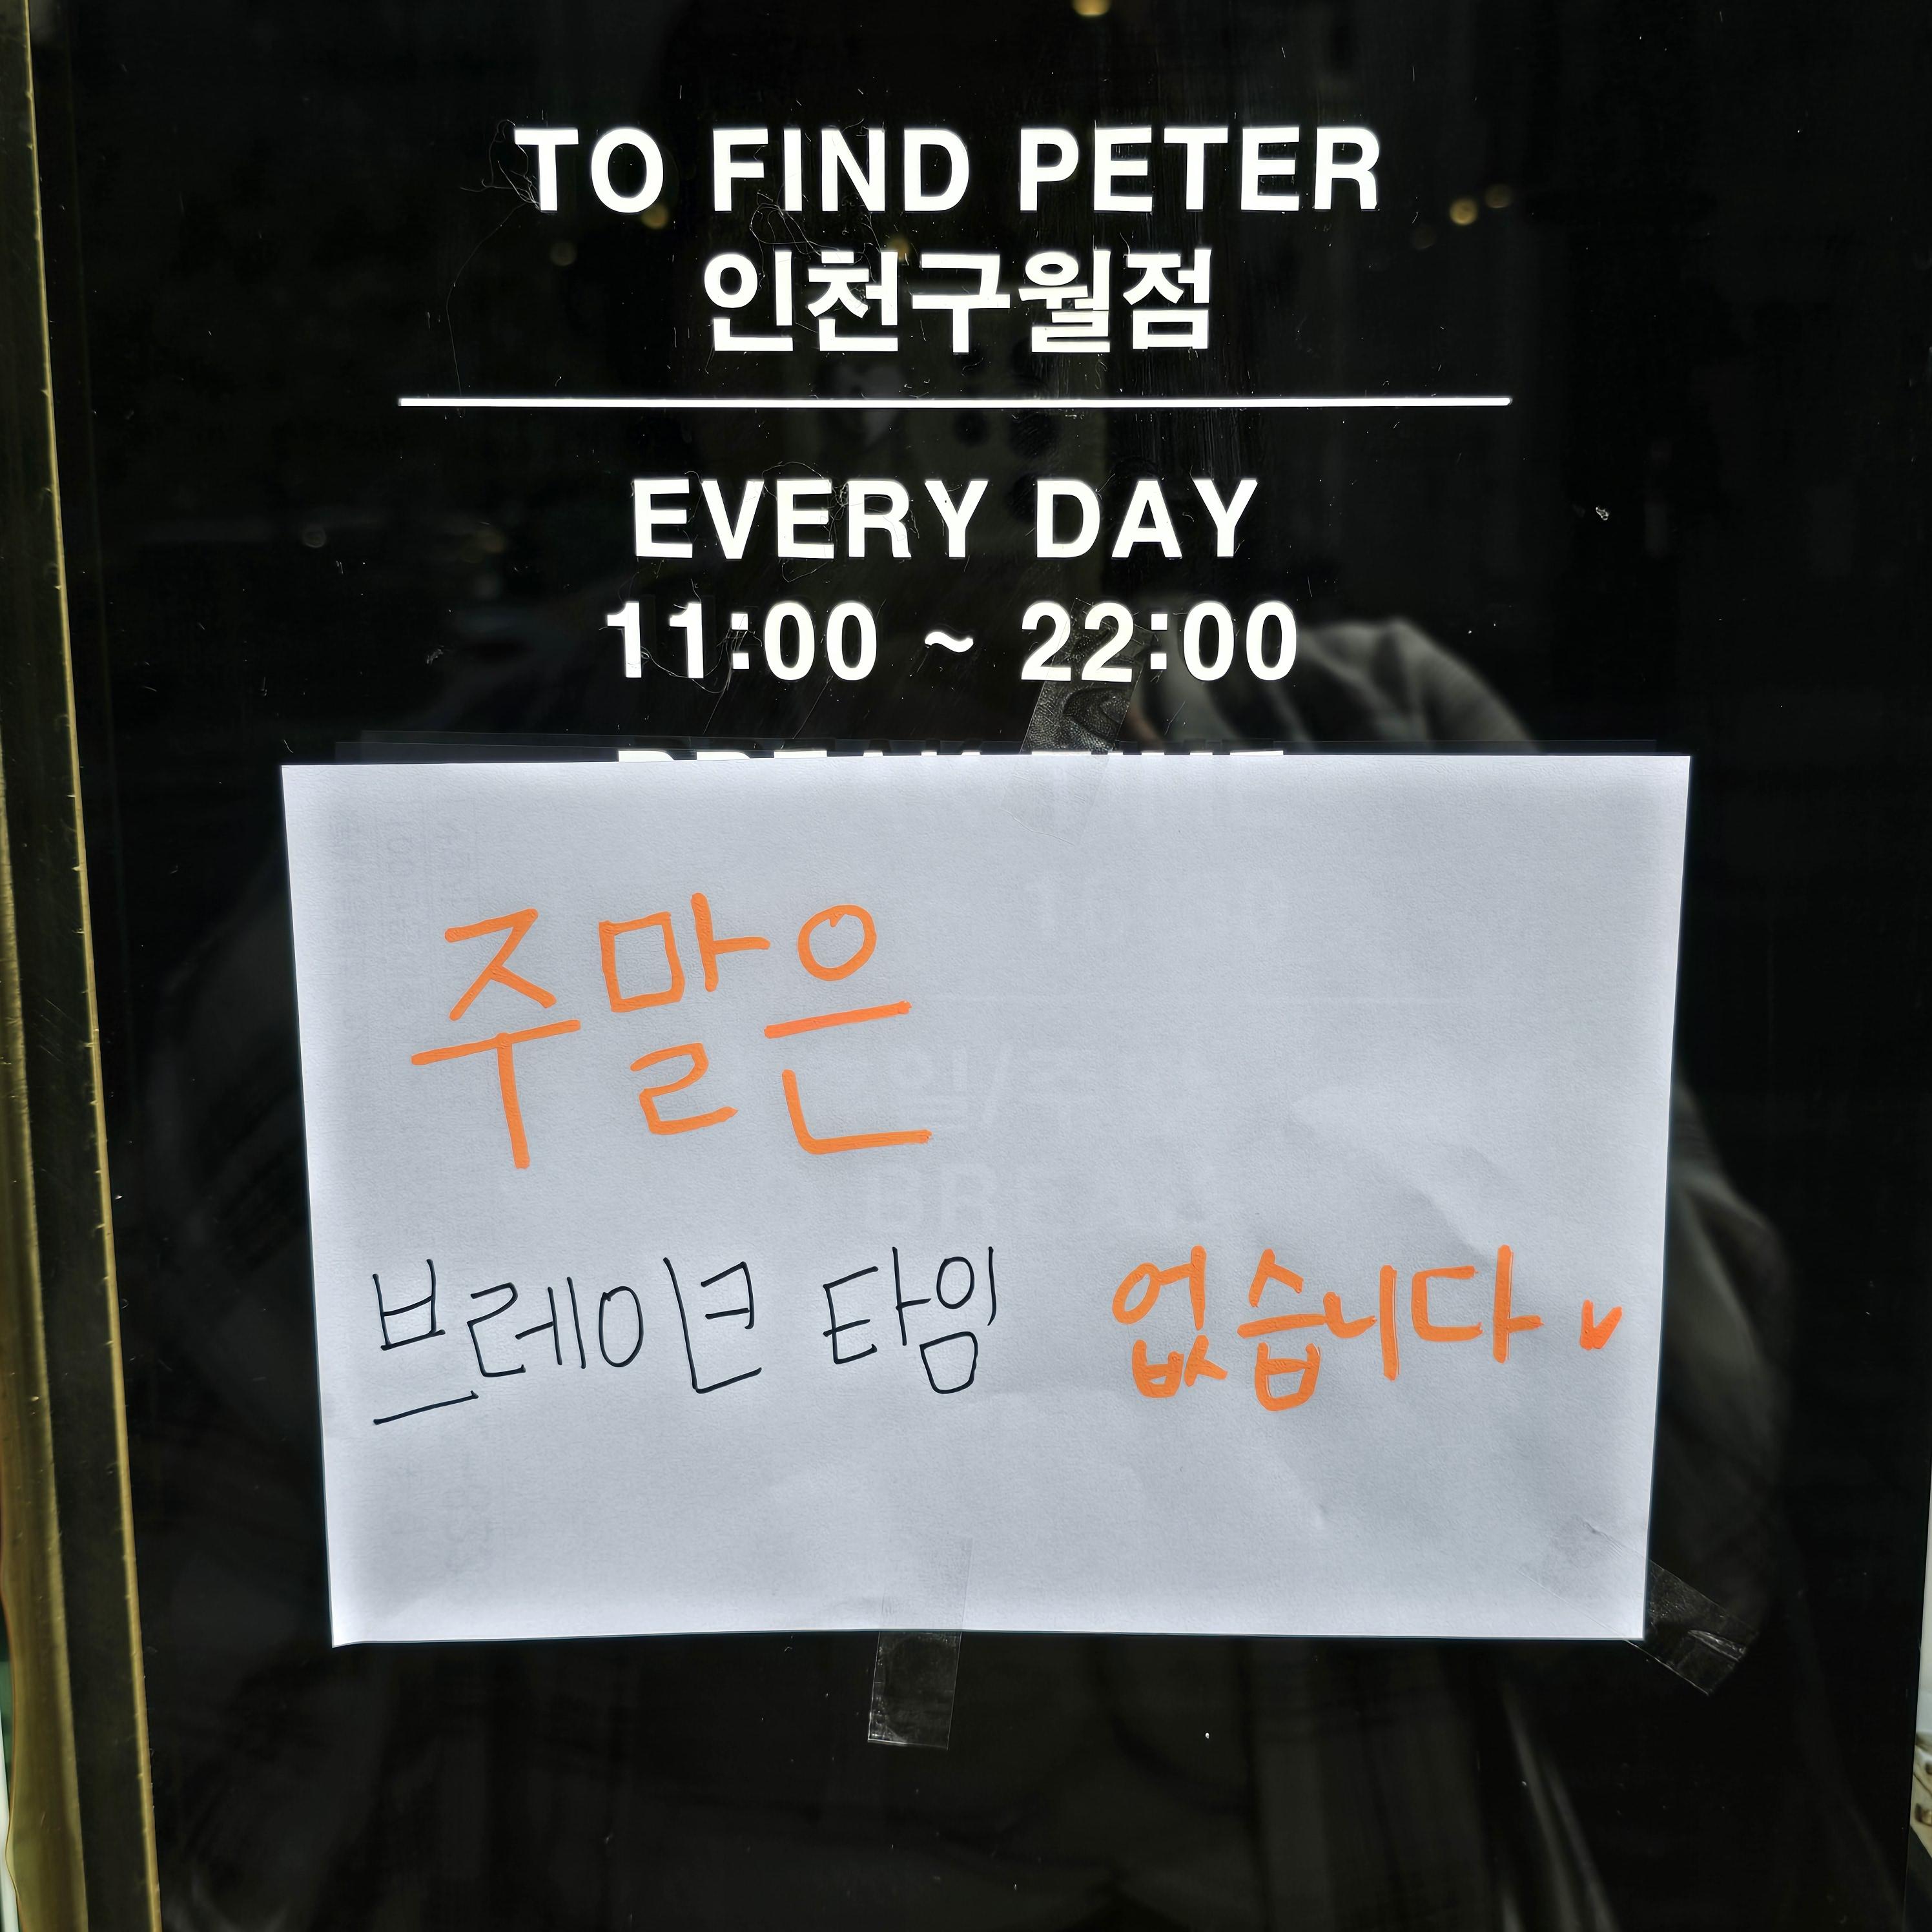 TO FIND PETER
인천구월점
EVERY DAY
11:00 ~ 22:00
BREAK TIME
주말은
브레이크 타임 없습니다